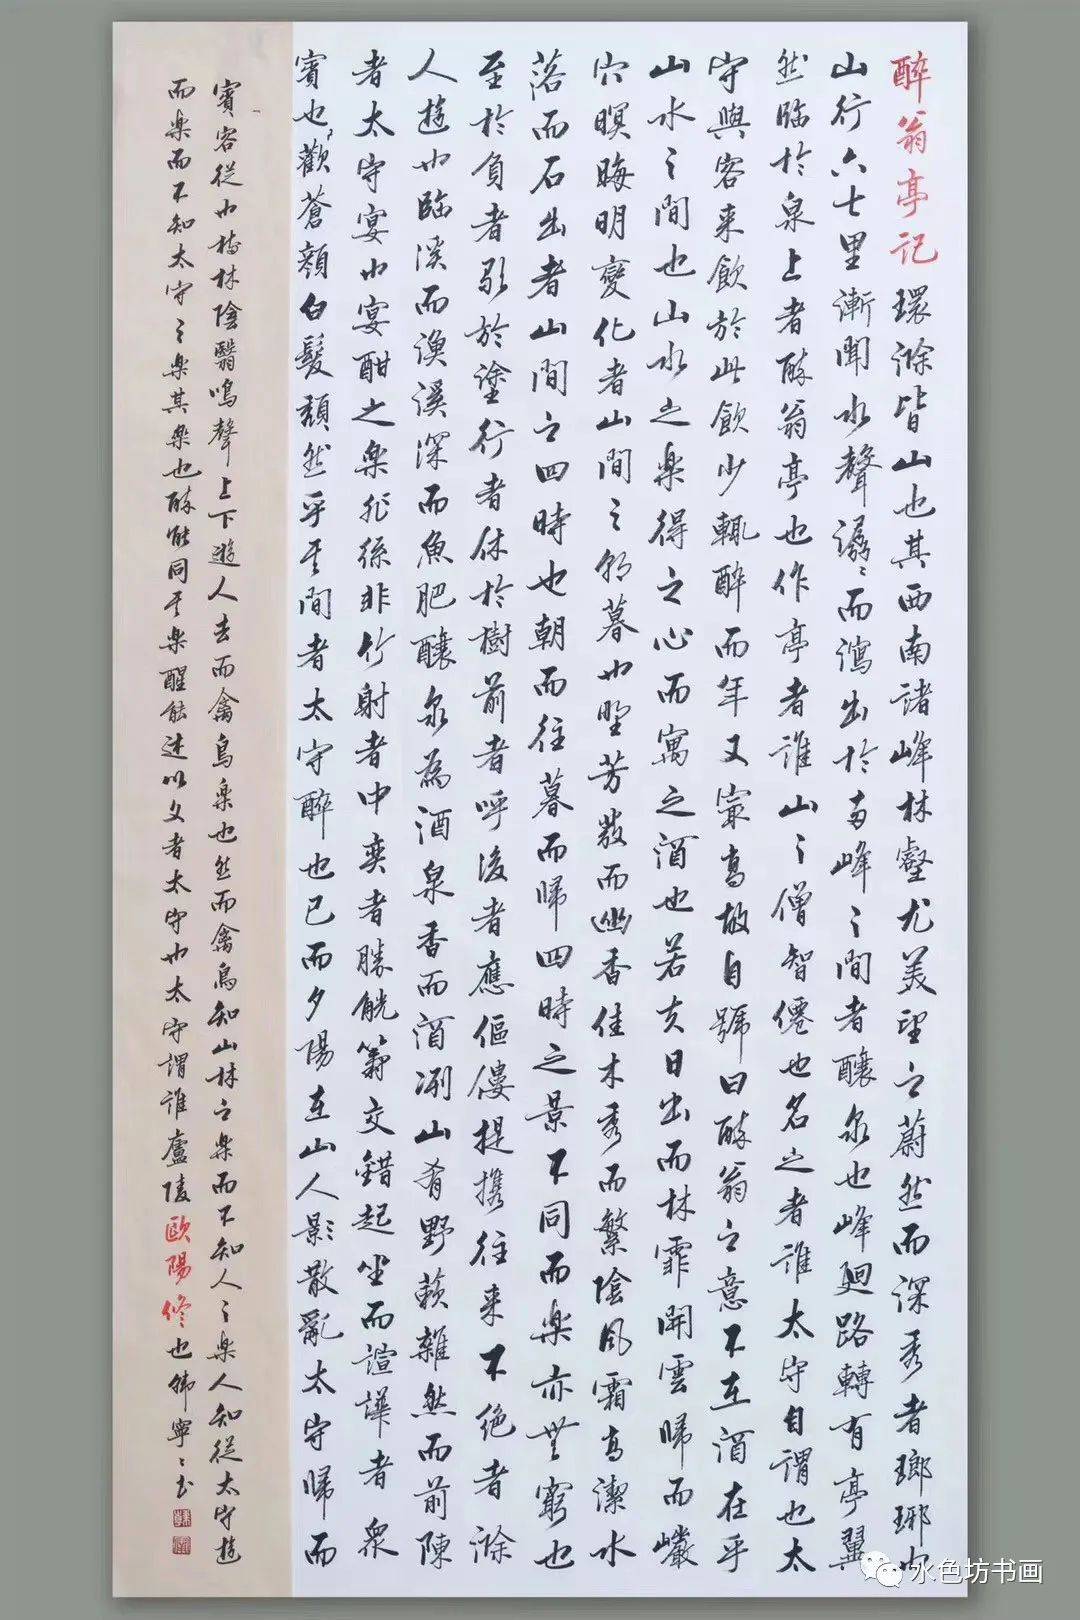 醉翁亭記 環滁皆山也其西南諸峰林壑尤美望之蔚然而深秀者瑯琊也
山行六七里漸聞水聲潺〻而瀉出於兩峰之間者釀泉也峰迴路轉有亭翼
然臨於泉上者醉翁亭也作亭者誰山〻僧智僊也名之者誰太守自謂也太
守與客来飲於此飲少輒醉而年又㝡高故自號曰醉翁之意不在酒在乎
山水之間也山水之楽得之心而寓之酒也若夫日出而林霏開雲歸而巖
穴暝晦明變化者山間之朝暮也野芳發而幽香佳木秀而繁陰風霜高潔水
落而石出者山間之四時也朝而往暮而歸四時之景不同而楽亦無窮也
至於負者歌於塗行者休於樹前者呼後者應傴僂提携往来不绝者滁
人遊也臨溪而漁溪深而魚肥釀泉為酒泉香而酒冽山肴野蔌雜然而前陳
者太守宴也宴酣之楽非絲非竹射者中奕者勝觥籌交錯起坐而諠譁者衆
賓也歡蒼顔白髮頹然乎其間者太守醉也已而夕陽在山人影散亂太守歸而
賓客從也樹林陰翳鳴聲上下遊人去而禽鳥楽也然而禽鳥知山林之楽而不知人之楽人知從太守遊
而楽而不知太守之楽其楽也醉能同其楽醒能述以文者太守也太守謂誰廬陵歐陽修也韩寧〻书
水色坊书画